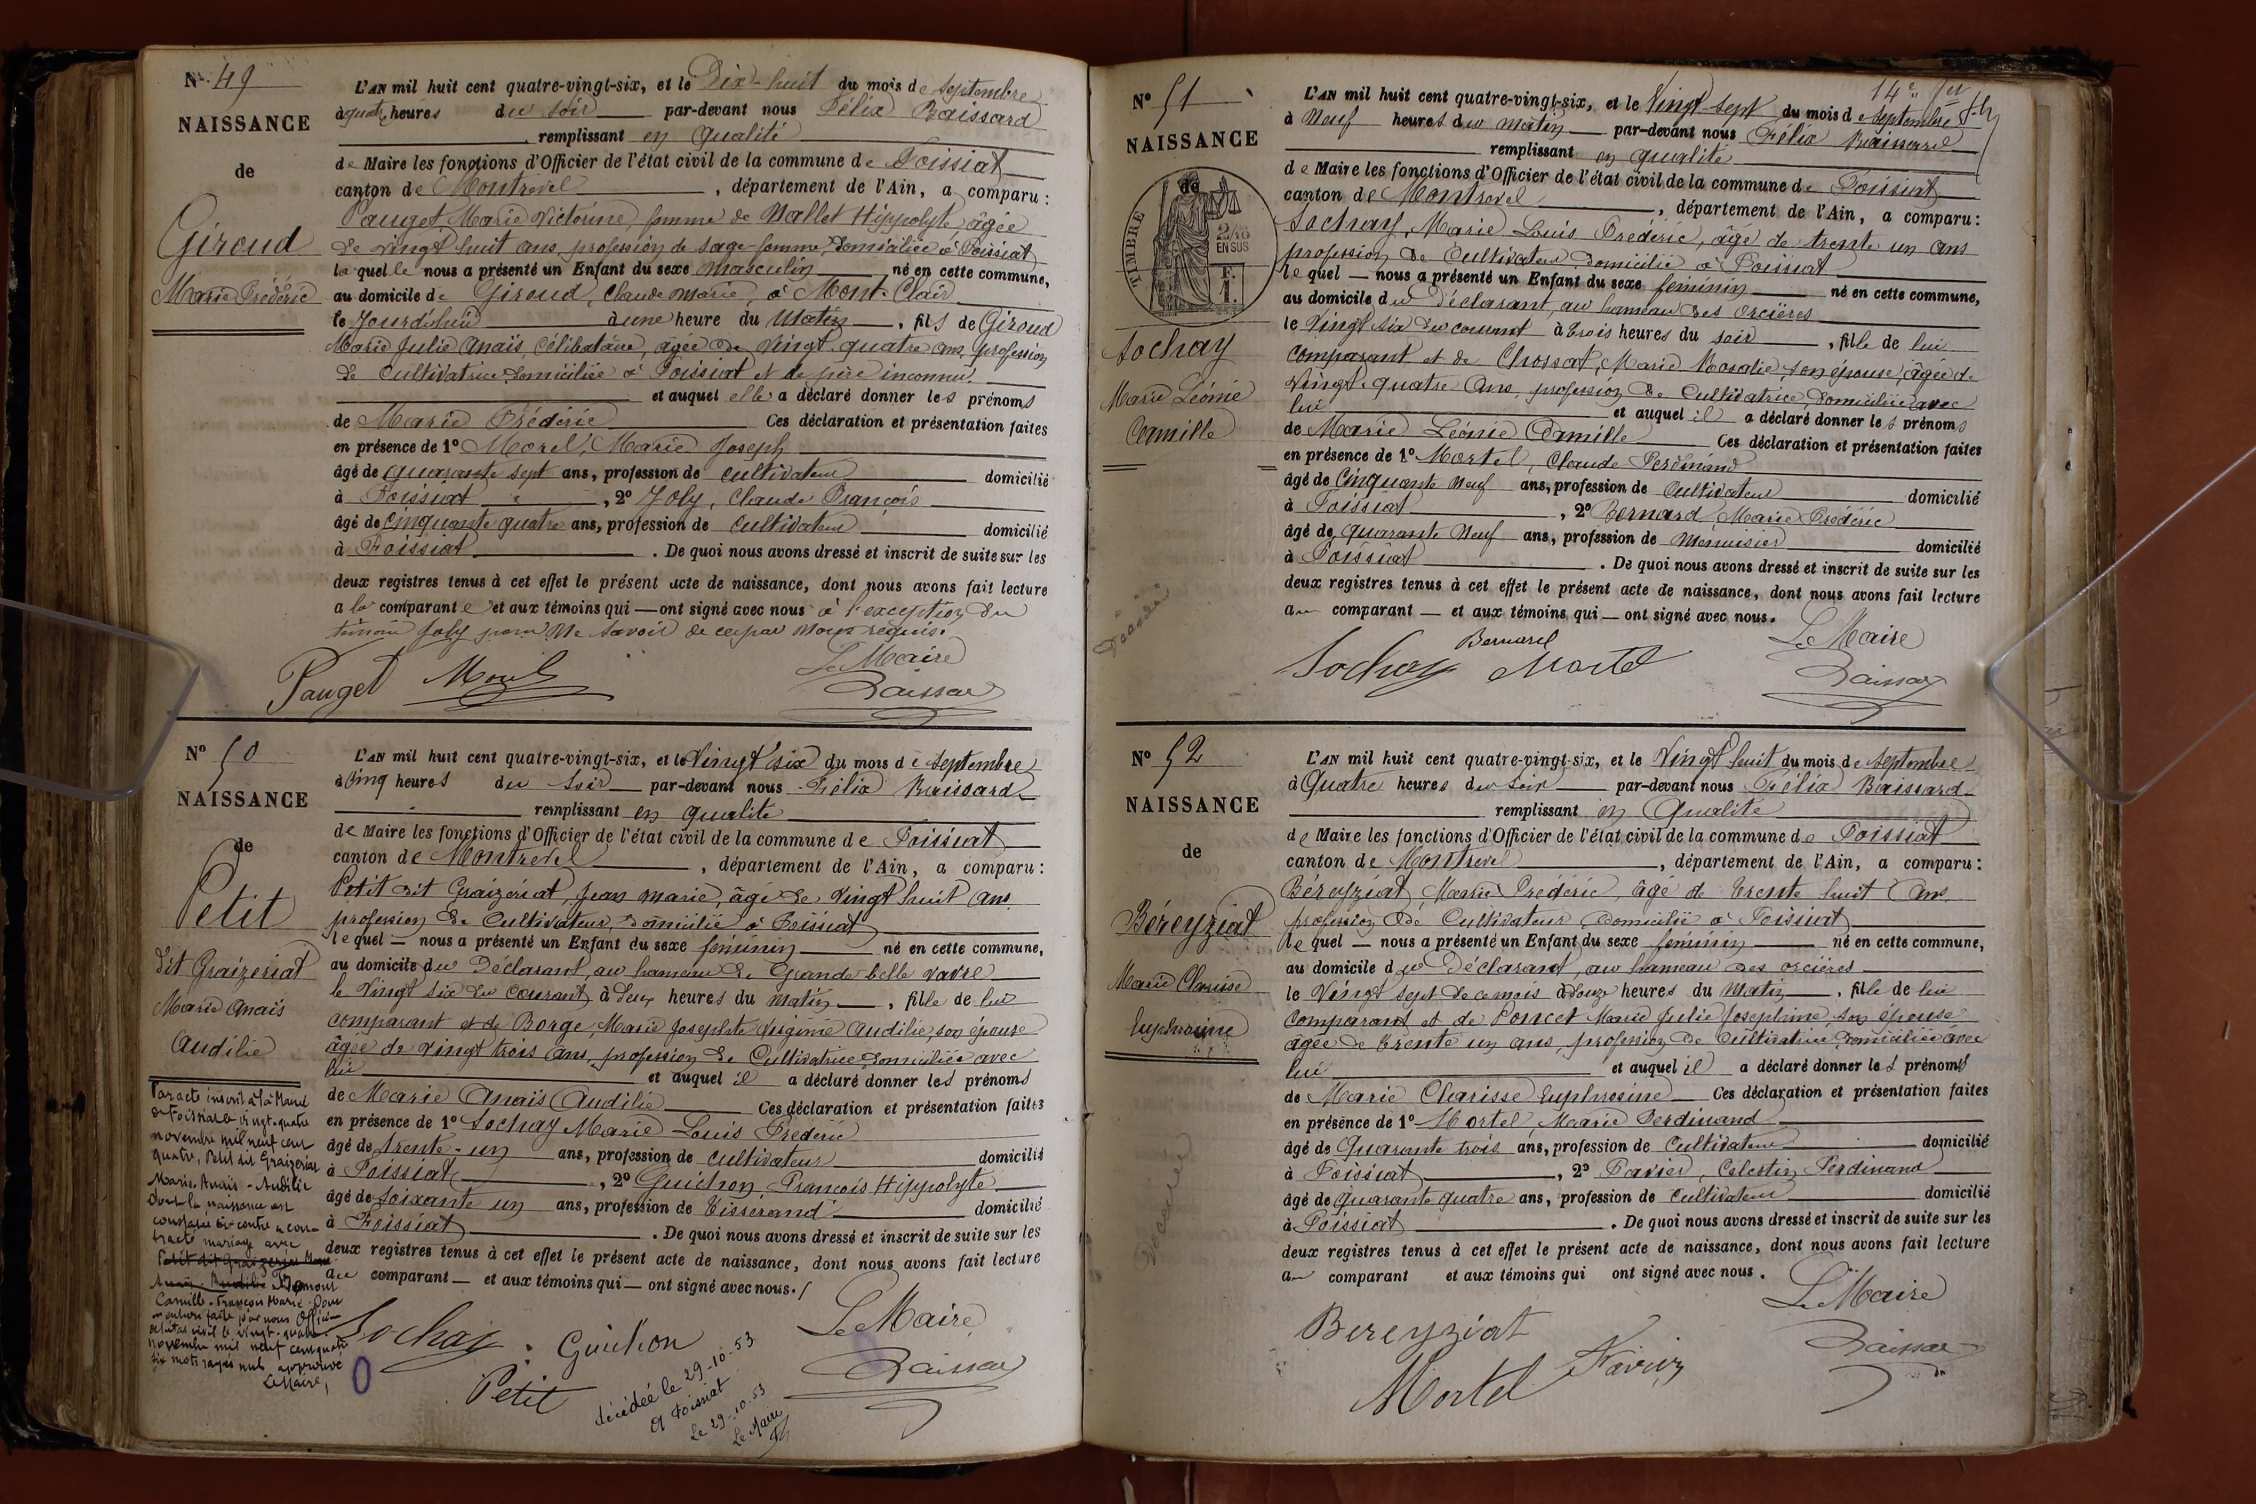 Nº 49
NAISSANCE
de
Giroud
Marie Frédéric
L'AN mil huit cent quatre-vingt-six, et le Dix-huit du mois de septembre
à quatre heures du soir par-devant nous Félix Raissard
remplissant en qualité
de Maire les fonctions d'Officier de l'état civil de la commune de Foissiat
canton de Montrevel, département de l'Ain, a comparu :
Pauget Marie Victorine, femme de Mallet Hippolyte, âgée
de vingt huit ans, profession de sage-femme, domiciliée à Foissiat
laquelle nous a présenté un Enfant du sexe masculin, né en cette commune,
au domicile de Giroud, Claude Marie, à Mont-Clair
le Jourd'hui à une heure du Matin, fils de Giroud
Marie Julie Anaïs, Célibataire, âgée de vingt-quatre ans, profession
de Cultivatrice domiciliée à Foissiat et de père inconnu.
et auquel elle a déclaré donner les prénoms
de Marie Frédéric Ces déclaration et présentation faites
en présence de 1º Morel, Marie Joseph
âgé de quarante sept ans, profession de cultivateur domicilié
à Foissiat, 2º Joly, Claude François
âgé de cinquante quatre ans, profession de cultivateur domicilié
à Foissiat. De quoi nous avons dressé et inscrit de suite sur les
deux registres tenus à cet effet le présent acte de naissance, dont nous avons fait lecture
a la comparante et aux témoins qui ont signé avec nous à l'exception du
témoin Joly pour ne savoir de ce par nous requis.
Pauget Morel Le Maire
Raissard
Nº 50
NAISSANCE
de
Petit
dit Graizeriat
Marie Anaïs
Audilie
L'AN mil huit cent quatre-vingt-six, et le Vingt six du mois de septembre
à cinq heures du soir par-devant nous Félix Raissard
remplissant en qualité
de Maire les fonctions d'Officier de l'état civil de la commune de Foissiat
canton de Montrevel, département de l'Ain, a comparu :
Petit dit Graizeriat, Jean Marie, âgé de vingt huit ans
profession de Cultivateur, domicilié à Foissiat
lequel nous a présenté un Enfant du sexe féminin né en cette commune,
au domicile du Déclarant, au hameau de Grande belle vavre
le Vingt six du courant, à deux heures du matin, fille de lui
comparant et de Borge, Marie Josephte Virginie Audilie, son épouse
âgée de vingt trois ans, profession de Cultivatrice domiciliée avec
lui et auquel il a déclaré donner les prénoms
de Marie Anaïs Audilie Ces déclaration et présentation faites
en présence de 1º Sochay Marie Louis Frédéric
âgé de trente-un ans, profession de cultivateur domicilié
à Foissiat, 2º Guichon François Hippolyte
âgé de soixante un ans, profession de Tisserand domicilié
à Foissiat. De quoi nous avons dressé et inscrit de suite sur les
deux registres tenus à cet effet le présent acte de naissance, dont nous avons fait lecture
au comparant et aux témoins qui ont signé avec nous.
Sochay Guichon Le Maire
Petit Raissard
Par acte inscrit à la Mairie
de Foissiat le vingt-quatre
novembre mil neuf cent
quatre, Petit dit Graizeriat
Marie-Anaïs-Audilie
dont la naissance est
constatée ci-contre a con-
tracté mariage avec
Petit dit Graizeriat Marie
Anaïs-Audilie
Camille-François Marie. Dont
mention faite par nous Officier
de l'état civil le vingt-quatre
novembre mil neuf cent quatre
six mots rayés nuls approuvé
Le Maire,
décédée le 29-10-53
à Foissiat
le 29-10-53
Le Maire
Nº 51
NAISSANCE
TIMBRE
2/10
EN SUS
Sochay
Marie Léonie
Camille
Décédée
L'AN mil huit cent quatre-vingt-six, et le Vingt-sept du mois de septembre
à Neuf heures du matin par-devant nous Félix Raissard
remplissant en qualité
de Maire les fonctions d'Officier de l'état civil de la commune de Foissiat
canton de Montrevel, département de l'Ain, a comparu :
Sochay, Marie Louis Frédéric, âgé de trente un ans
profession de Cultivateur domicilié à Foissiat
lequel nous a présenté un Enfant du sexe féminin né en cette commune,
au domicile du déclarant, au hameau des orcières
le Vingt six du courant à trois heures du soir, fille de lui
comparant et de Chossat, Marie Rosalie, son épouse, âgée de
vingt-quatre ans, profession de Cultivatrice, domiciliée avec
lui et auquel il a déclaré donner les prénoms
de Marie Léonie Camille Ces déclaration et présentation faites
en présence de 1º Mortel, Claude Ferdinand
âgé de Cinquante neuf ans, profession de Cultivateur domicilié
à Foissiat, 2º Bernard Marie Frédéric
âgé de quarante neuf ans, profession de Menuisier domicilié
à Foissiat. De quoi nous avons dressé et inscrit de suite sur les
deux registres tenus à cet effet le présent acte de naissance, dont nous avons fait lecture
au comparant et aux témoins qui ont signé avec nous.
Bernard Le Maire
Sochay Mortel Raissard
Nº 52
NAISSANCE
de
Béreyziat
Marie Clarisse
Euphrosine
Décédée
L'AN mil huit cent quatre-vingt-six, et le Vingt huit du mois de septembre
à Quatre heures du soir par-devant nous Félix Raissard
remplissant en Qualité
de Maire les fonctions d'Officier de l'état civil de la commune de Foissiat
canton de Montrevel, département de l'Ain, a comparu :
Béreyziat, Marie Frédéric, âgé de trente huit ans
profession de Cultivateur, domicilié à Foissiat
lequel nous a présenté un Enfant du sexe féminin né en cette commune,
au domicile du Déclarant, au hameau des orcières
le Vingt sept de ce mois à douze heures du Matin, fille de lui
comparant et de Poncet Marie Julie Josephine, son épouse
âgée de trente un ans, profession de Cultivatrice domiciliée avec
lui et auquel il a déclaré donner les prénoms
de Marie Clarisse Euphrosine Ces déclaration et présentation faites
en présence de 1º Mortel, Marie Ferdinand
âgé de Quarante trois ans, profession de Cultivateur domicilié
à Foissiat, 2º Favier, Celestin Ferdinand
âgé de quarante quatre ans, profession de cultivateur domicilié
à Foissiat. De quoi nous avons dressé et inscrit de suite sur les
deux registres tenus à cet effet le présent acte de naissance, dont nous avons fait lecture
au comparant et aux témoins qui ont signé avec nous.
Le Maire
Bereyziat Raissard
Mortel Favier